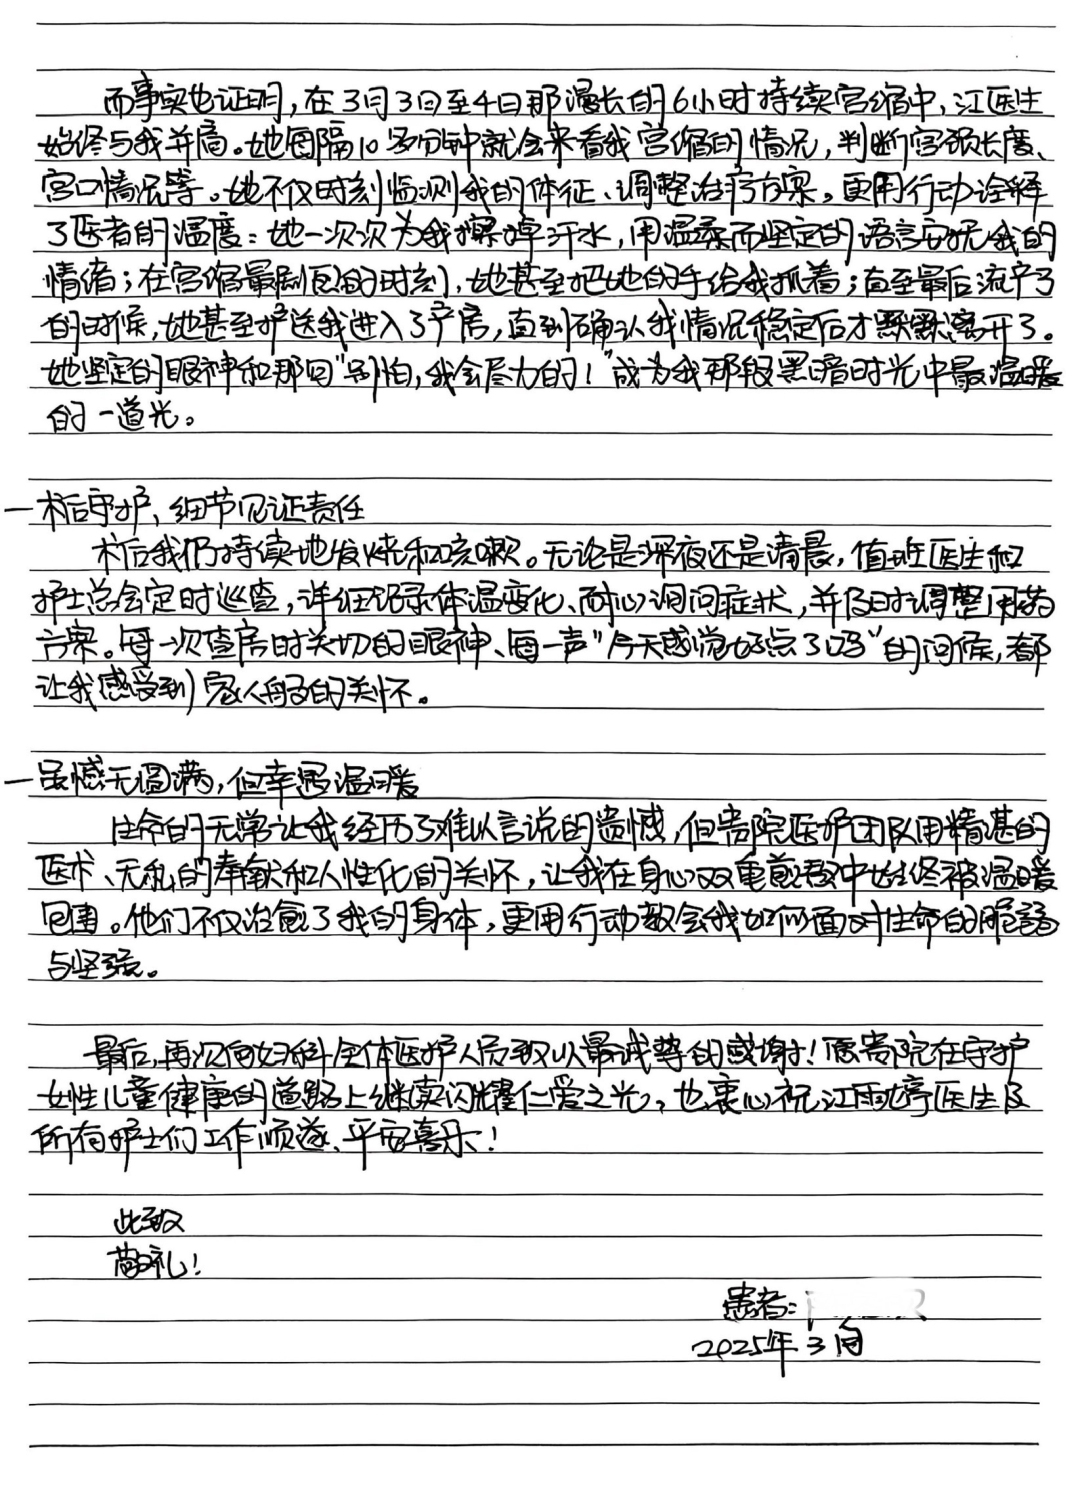 而事实也证明，在3月3日至4日那漫长的6小时持续宫缩中，江医生
始终与我并肩。她每隔10多分钟就会来看我宫缩的情况，判断宫颈长度、
宫口情况等。她不仅时刻监测我的体征、调整治疗方案。更用行动诠释
了医者的温度：她一次次为我擦掉汗水，用温柔而坚定的语言安抚我的
情绪；在宫缩最剧烈的时刻，她甚至把她的手给我抓着；直至最后流产了
的时候，她甚至护送我进入了产房，直到确认我情况稳定后才默默离开了。
她坚定的眼神和那句“别怕，我会尽力的！”成为我那段黑暗时光中最温暖
的一道光。
一术后守护，细节见证责任
术后我仍持续地发烧和咳嗽。无论是深夜还是清晨，值班医生和
护士总会定时巡查，详细记录体温变化、耐心询问症状，并及时调整用药
方案。每一次查房时关切的眼神、每一声“今天感觉好点了吗”的问候，都
让我感受到家人般的关怀。
一虽憾无圆满，但幸遇温暖
生命的无常让我经历了难以言说的遗憾，但贵院医护团队用精湛的
医术、无私的奉献和人性化的关怀，让我在身心双重煎熬中始终被温暖
包围。他们不仅治愈了我的身体，更用行动教会我如何面对生命的脆弱
与坚强。
最后，再次向妇科全体医护人员致以最诚挚的感谢！愿贵院在守护
女性儿童健康的道路上继续闪耀仁爱之光，也衷心祝江雨婷医生及
所有护士们工作顺遂、平安喜乐！
此致
敬礼！
患者：
2025年3月